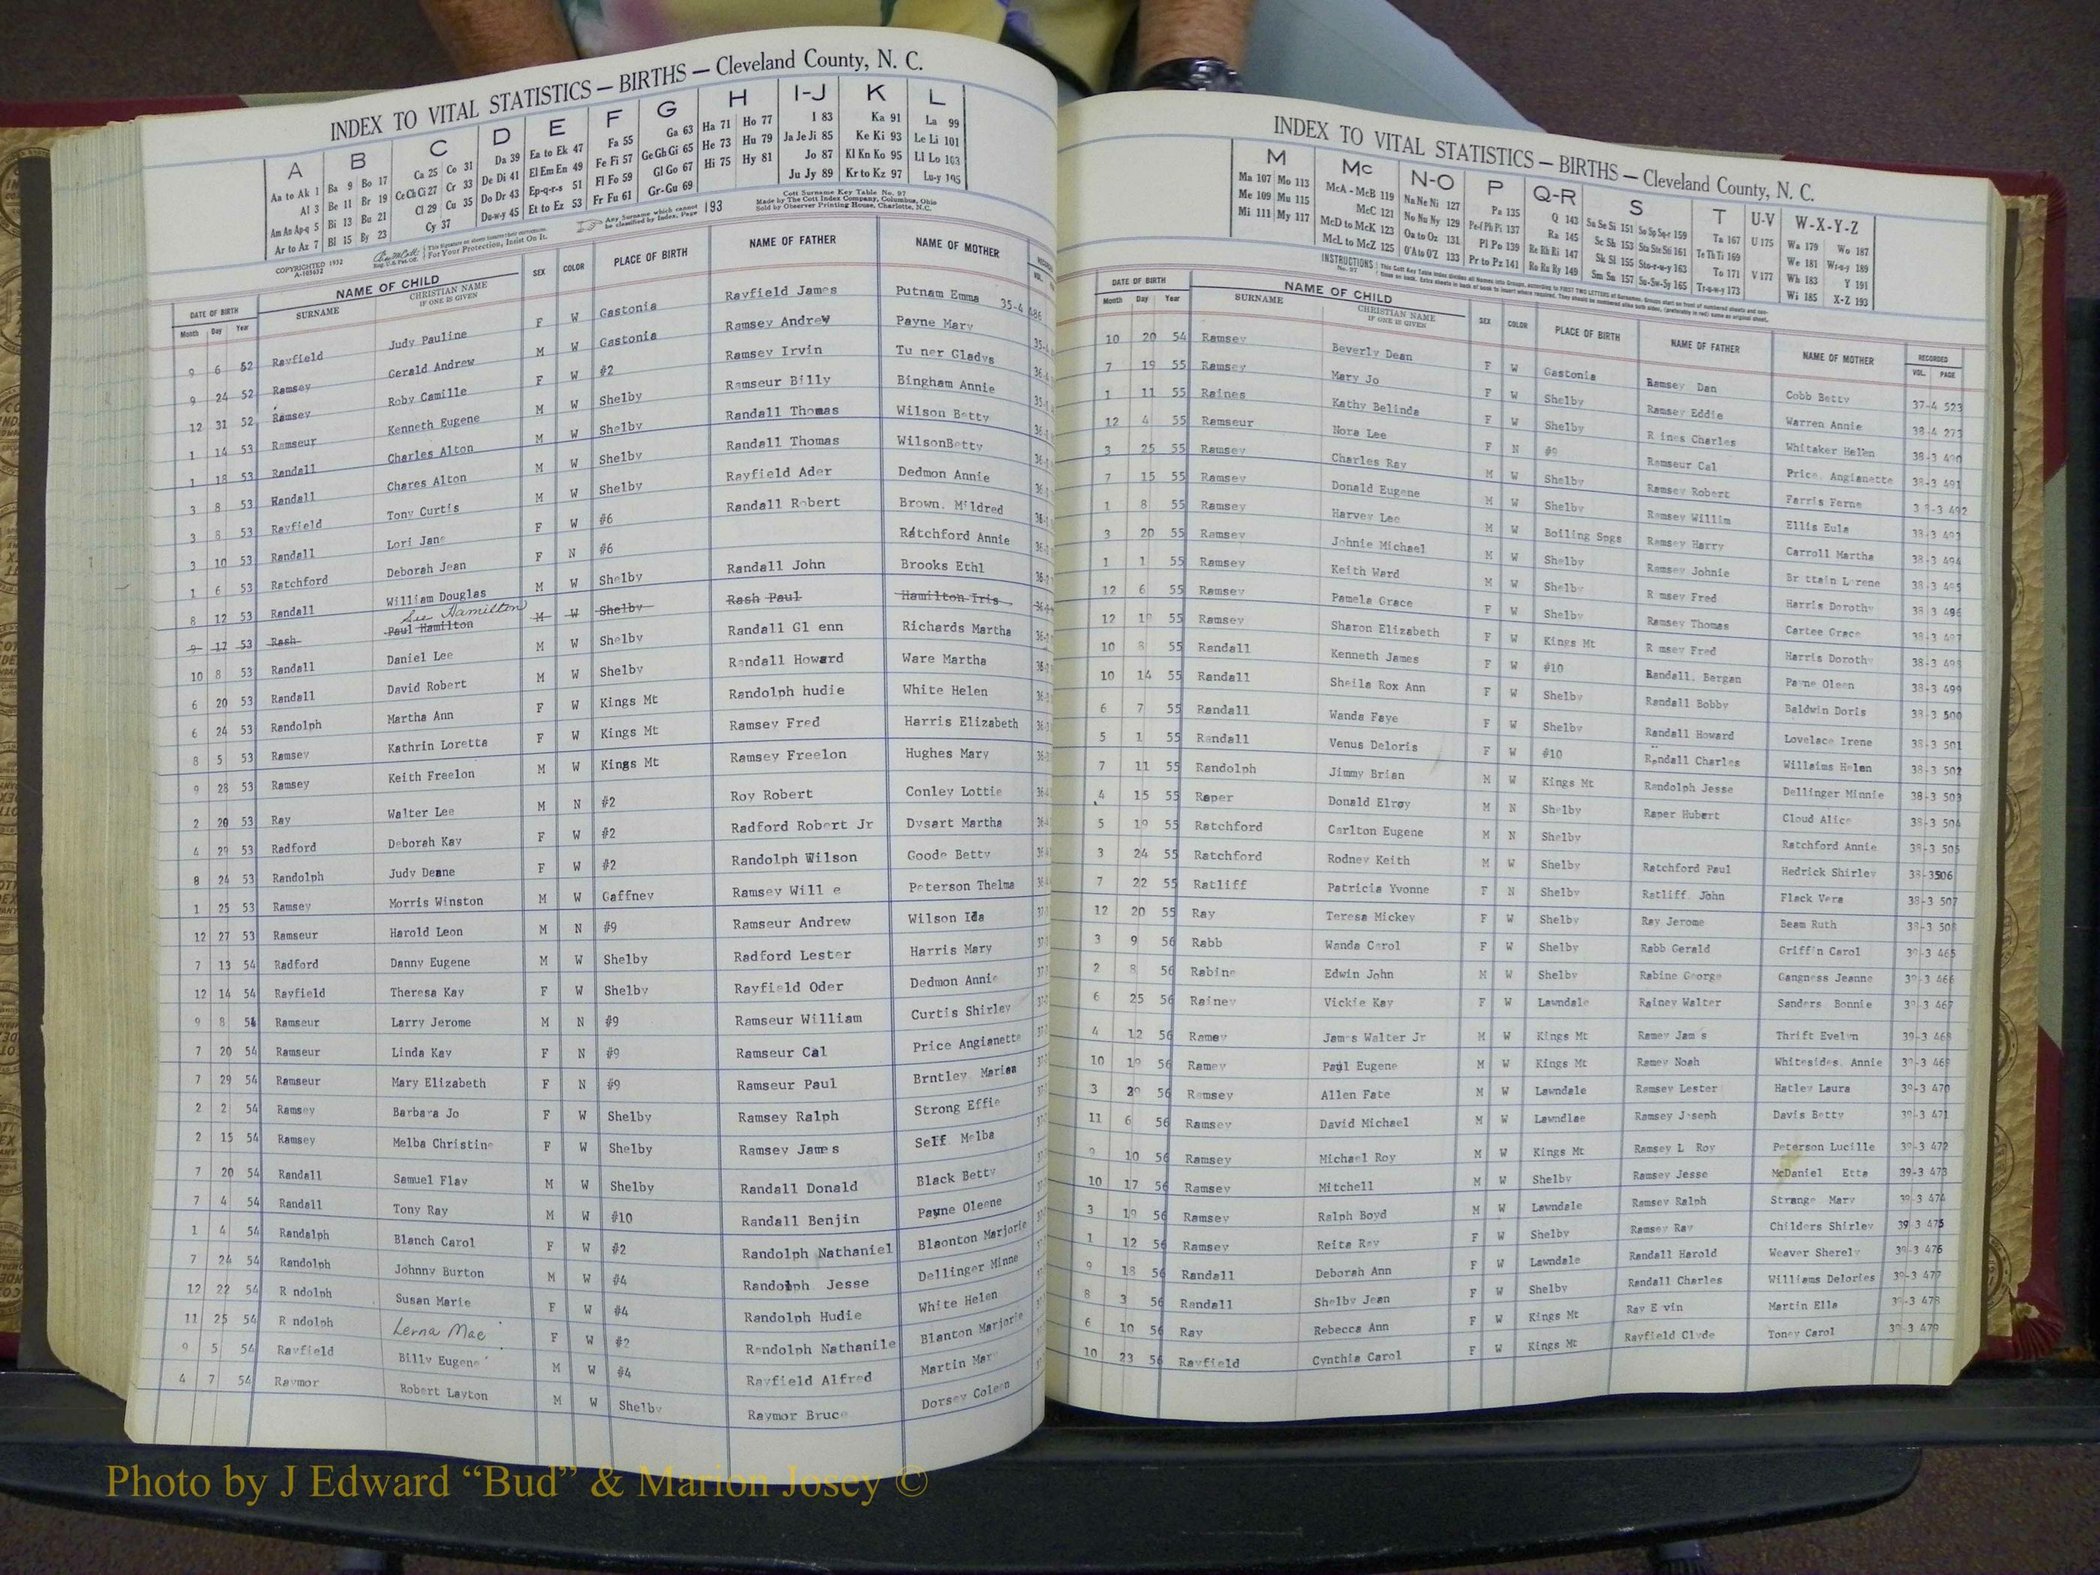 INDEX TO VITAL STATISTICS — BIRTHS — Cleveland County, N. C.
A B C D E F G H I-J K L
Aa to Ak 1 Ba 9 Bo 17 Ca 25 Co 31 Da 39 Ea to Ek 47 Fa 55 Ga 63 Ha 71 Ho 77 I 83 Ka 91 La 99
Al 3 Be 11 Br 19 Ce Ch Ci 27 Cr 33 De Di 41 El Em En 49 Fe Fi 57 Ge Gh Gi 65 He 73 Hu 79 Ja Je Ji 85 Ke Ki 93 Le Li 101
Am An Ap-q 5 Bi 13 Bu 21 Cl 29 Cu 35 Do Dr 43 Ep-q-r-s 51 Fl Fo 59 Gl Go 67 Hi 75 Hy 81 Jo 87 Kl Kn Ko 95 Ll Lo 103
Ar to Az 7 Bl 15 By 23 Cy 37 Du-w-y 45 Et to Ez 53 Fr Fu 61 Gr-Gu 69 Ju Jy 89 Kr to Kz 97 Lu-y 105
COPYRIGHTED 1932
A-105632
This Signature on sheets insures their correctness.
For Your Protection, Insist On It.
Any Surname which cannot be classified by Index, Page 193
Cott Surname Key Table No. 97
Made by The Cott Index Company, Columbus, Ohio
Sold by Observer Printing House, Charlotte, N.C.
DATE OF BIRTH NAME OF CHILD SEX COLOR PLACE OF BIRTH NAME OF FATHER NAME OF MOTHER
Month Day Year SURNAME CHRISTIAN NAME IF ONE IS GIVEN VOL.
9 6 52 Rayfield Judy Pauline F W Gastonia Rayfield James Putnam Emma 35-4 486
9 24 52 Ramsey Gerald Andrew M W Gastonia Ramsey Andrew Payne Mary
12 31 52 Ramsey Roby Camille F W #2 Ramsey Irvin Tu ner Gladys
1 14 53 Ramseur Kenneth Eugene M W Shelby Ramseur Billy Bingham Annie
1 18 53 Randall Charles Alton M W Shelby Randall Thomas Wilson Betty
3 8 53 Randall Chares Alton M W Shelby Randall Thomas WilsonBetty
3 8 53 Rayfield Tony Curtis M W Shelby Rayfield Ader Dedmon Annie
3 10 53 Randall Lori Jane F W #6 Randall Robert Brown. Mildred
1 6 53 Ratchford Deborah Jean F N #6 Ratchford Annie
8 12 53 Randall William Douglas M W Shelby Randall John Brooks Ethl
See Hamilton
9 17 53 Rash Paul Hamilton M W Shelby Rash Paul Hamilton Iris
10 8 53 Randall Daniel Lee M W Shelby Randall Gl enn Richards Martha
6 20 53 Randall David Robert M W Shelby Randall Howard Ware Martha
6 24 53 Randolph Martha Ann F W Kings Mt Randolph hudie White Helen
8 5 53 Ramsey Kathrin Loretta F W Kings Mt Ramsey Fred Harris Elizabeth
9 28 53 Ramsey Keith Freelon M W Kings Mt Ramsey Freelon Hughes Mary
2 20 53 Ray Walter Lee M N #2 Roy Robert Conley Lottie
4 29 53 Radford Deborah Kay F W #2 Radford Robert Jr Dysart Martha
8 24 53 Randolph Judy Deane F W #2 Randolph Wilson Goode Betty
1 25 53 Ramsey Morris Winston M W Gaffney Ramsey Will e Peterson Thelma
12 27 53 Ramseur Harold Leon M N #9 Ramseur Andrew Wilson Ida
7 13 54 Radford Danny Eugene M W Shelby Radford Lester Harris Mary
12 14 54 Rayfield Theresa Kay F W Shelby Rayfield Oder Dedmon Annie
9 8 54 Ramseur Larry Jerome M N #9 Ramseur William Curtis Shirley
7 20 54 Ramseur Linda Kay F N #9 Ramseur Cal Price Angianette
7 29 54 Ramseur Mary Elizabeth F N #9 Ramseur Paul Brntley Marian
2 2 54 Ramsey Barbara Jo F W Shelby Ramsey Ralph Strong Effie
2 15 54 Ramsey Melba Christine F W Shelby Ramsey James Self Melba
7 20 54 Randall Samuel Flay M W Shelby Randall Donald Black Betty
7 4 54 Randall Tony Ray M W #10 Randall Benjin Payne Oleene
1 4 54 Randalph Blanch Carol F W #2 Randolph Nathaniel Blaonton Marjorie
7 24 54 Randolph Johnny Burton M W #4 Randolph Jesse Dellinger Minne
12 22 54 R ndolph Susan Marie F W #4 Randolph Hudie White Helen
11 25 54 R ndolph Lerna Mae F W #2 Randolph Nathanile Blanton Marjorie
9 5 54 Rayfield Billy Eugene M W #4 Rayfield Alfred Martin Mary
4 7 54 Raymor Robert Layton M W Shelby Raymor Bruce Dorsey Coleen
INDEX TO VITAL STATISTICS — BIRTHS — Cleveland County, N. C.
M Mc N-O P Q-R S T U-V W-X-Y-Z
Ma 107 Mo 113 McA - McB 119 Na Ne Ni 127 Pa 135 Q 143 Sa Se Si 151 So Sp Sq-r 159 Ta 167 U 175 Wa 179 Wo 187
Me 109 Mu 115 McC 121 No Nu Ny 129 Pe-f Ph Pi 137 Ra 145 Sc Sh 153 Sta Ste Sti 161 Te Th Ti 169 We 181 Wr-u-y 189
Mi 111 My 117 McD to McK 123 Oa to Oz 131 Pl Po 139 Re Rh Ri 147 Sk Sl 155 Sto-r-u-y 163 To 171 V 177 Wh 183 Y 191
McL to McZ 125 O'A to O'Z 133 Pr to Pz 141 Ro Ru Ry 149 Sm Sn 157 Su-Sw-Sy 165 Tr-u-w-y 173 Wi 185 X-Z 193
INSTRUCTIONS No. 97
DATE OF BIRTH NAME OF CHILD SEX COLOR PLACE OF BIRTH NAME OF FATHER NAME OF MOTHER RECORDED
Month Day Year SURNAME CHRISTIAN NAME IF ONE IS GIVEN VOL. PAGE
10 20 54 Ramsey Beverly Dean F W Gastonia Ramsey Dan Cobb Betty 37-4 523
7 19 55 Ramsey Mary Jo F W Shelby Ramsey Eddie Warren Annie 38-4 273
1 11 55 Raines Kathy Belinda F W Shelby R ines Charles Whitaker Helen 38-3 490
12 4 55 Ramseur Nora Lee F N #9 Ramseur Cal Price, Angianette 38-3 491
3 25 55 Ramsey Charles Ray M W Shelby Ramsey Robert Farris Ferne 38-3 492
7 15 55 Ramsey Donald Eugene M W Shelby Ramsey Willim Ellis Eula 38-3 493
1 8 55 Ramsey Harvey Lee M W Boiling Spgs Ramsey Harry Carroll Martha 38-3 494
3 20 55 Ramsey Johnie Michael M W Shelby Ramsey Johnie Br ttain Lorene 38-3 495
1 1 55 Ramsey Keith Ward M W Shelby R msey Fred Harris Dorothy 38-3 496
12 6 55 Ramsey Pamela Grace F W Shelby Ramsey Thomas Cartee Grace 38-3 497
12 19 55 Ramsey Sharon Elizabeth F W Kings Mt R msey Fred Harris Dorothy 38-3 498
10 8 55 Randall Kenneth James F W #10 Randall, Bergan Payne Oleen 38-3 499
10 14 55 Randall Sheila Rox Ann F W Shelby Randall Bobby Baldwin Doris 38-3 500
6 7 55 Randall Wanda Faye F W Shelby Randall Howard Lovelace Irene 38-3 501
5 1 55 Randall Venus Deloris F W #10 Randall Charles Willaims Helen 38-3 502
7 11 55 Randolph Jimmy Brian M W Kings Mt Randolph Jesse Dellinger Minnie 38-3 503
4 15 55 Raper Donald Elroy M N Shelby Raper Hubert Cloud Alice 38-3 504
5 19 55 Ratchford Carlton Eugene M N Shelby Ratchford Annie 38-3 505
3 24 55 Ratchford Rodney Keith M W Shelby Ratchford Paul Hedrick Shirley 38-3506
7 22 55 Ratliff Patricia Yvonne F N Shelby Ratliff John Flack Vera 38-3 507
12 20 55 Ray Teresa Mickey F W Shelby Ray Jerome Beam Ruth 38-3 508
3 9 56 Rabb Wanda Carol F W Shelby Rabb Gerald Griffin Carol 39-3 465
2 8 56 Rabine Edwin John M W Shelby Rabine George Gangness Jeanne 39-3 466
6 25 56 Rainey Vickie Kay F W Lawndale Rainey Walter Sanders Bonnie 39-3 467
4 12 56 Ramey James Walter Jr M W Kings Mt Ramey Jam s Thrift Evelyn 39-3 468
10 19 56 Ramey Paul Eugene M W Kings Mt Ramey Noah Whitesides. Annie 39-3 469
3 29 56 Ramsey Allen Fate M W Lawndale Ramsey Lester Hatley Laura 39-3 470
11 6 56 Ramsey David Michael M W Lawndlae Ramsey Joseph Davis Betty 39-3 471
9 10 56 Ramsey Michael Roy M W Kings Mt Ramsey L Roy Peterson Lucille 39-3 472
10 17 56 Ramsey Mitchell M W Shelby Ramsey Jesse McDaniel Etta 39-3 473
3 19 56 Ramsey Ralph Boyd M W Lawndale Ramsey Ralph Strange Mary 39-3 474
1 12 56 Ramsey Reita Ray F W Shelby Ramsey Ray Childers Shirley 39 3 475
9 18 56 Randall Deborah Ann F W Lawndale Randall Harold Weaver Sherely 39-3 476
8 3 56 Randall Shelby Jean F W Shelby Randall Charles Williams Delories 39-3 477
6 10 56 Ray Rebecca Ann F W Kings Mt Ray E vin Martin Ella 39-3 478
10 23 56 Rayfield Cynthia Carol F W Kings Mt Rayfield Clyde Toney Carol 39-3 479
Photo by J Edward “Bud” & Marion Josey ©